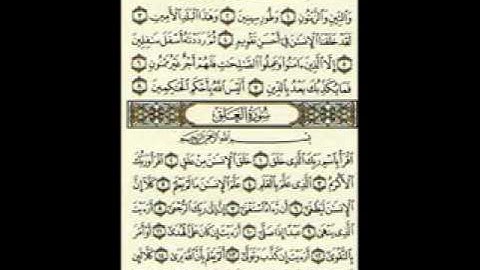 وَٱلتِّينِ وَٱلزَّيْتُونِ ١ وَطُورِ سِينِينَ ٢ وَهَٰذَا ٱلْبَلَدِ ٱلْأَمِينِ ٣
لَقَدْ خَلَقْنَا ٱلْإِنسَٰنَ فِىٓ أَحْسَنِ تَقْوِيمٍ ٤ ثُمَّ رَدَدْنَٰهُ أَسْفَلَ سَٰفِلِينَ
٥ إِلَّا ٱلَّذِينَ ءَامَنُوا۟ وَعَمِلُوا۟ ٱلصَّٰلِحَٰتِ فَلَهُمْ أَجْرٌ غَيْرُ مَمْنُونٍ ٦
فَمَا يُكَذِّبُكَ بَعْدُ بِٱلدِّينِ ٧ أَلَيْسَ ٱللَّهُ بِأَحْكَمِ ٱلْحَٰكِمِينَ ٨
سُورَةُ ٱلْعَلَقِ
بِسْمِ ٱللَّهِ ٱلرَّحْمَٰنِ ٱلرَّحِيمِ
ٱقْرَأْ بِٱسْمِ رَبِّكَ ٱلَّذِى خَلَقَ ١ خَلَقَ ٱلْإِنسَٰنَ مِنْ عَلَقٍ ٢ ٱقْرَأْ وَرَبُّكَ
ٱلْأَكْرَمُ ٣ ٱلَّذِى عَلَّمَ بِٱلْقَلَمِ ٤ عَلَّمَ ٱلْإِنسَٰنَ مَا لَمْ يَعْلَمْ ٥ كَلَّآ إِنَّ
ٱلْإِنسَٰنَ لَيَطْغَىٰٓ ٦ أَن رَّءَاهُ ٱسْتَغْنَىٰٓ ٧ إِنَّ إِلَىٰ رَبِّكَ ٱلرُّجْعَىٰٓ ٨ أَرَءَيْتَ
ٱلَّذِى يَنْهَىٰ ٩ عَبْدًا إِذَا صَلَّىٰٓ ١٠ أَرَءَيْتَ إِن كَانَ عَلَى ٱلْهُدَىٰٓ ١١ أَوْ أَمَرَ
بِٱلتَّقْوَىٰٓ ١٢ أَرَءَيْتَ إِن كَذَّبَ وَتَوَلَّىٰٓ ١٣ أَلَمْ يَعْلَم بِأَنَّ ٱللَّهَ يَرَىٰ ١٤ كَلَّا لَئِن